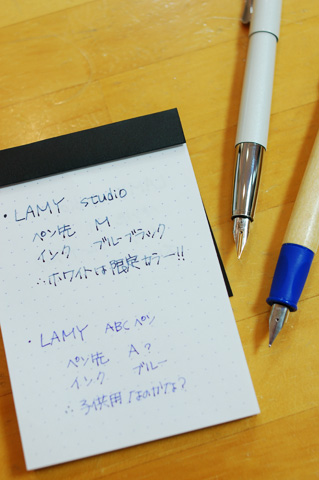 ・LAMY studio
ペン先 M
インク ブルーブラック
∴ホワイトは限定カラー!!
・LAMY ABCペン
ペン先 A?
インク ブルー
∴子供用なのかな?